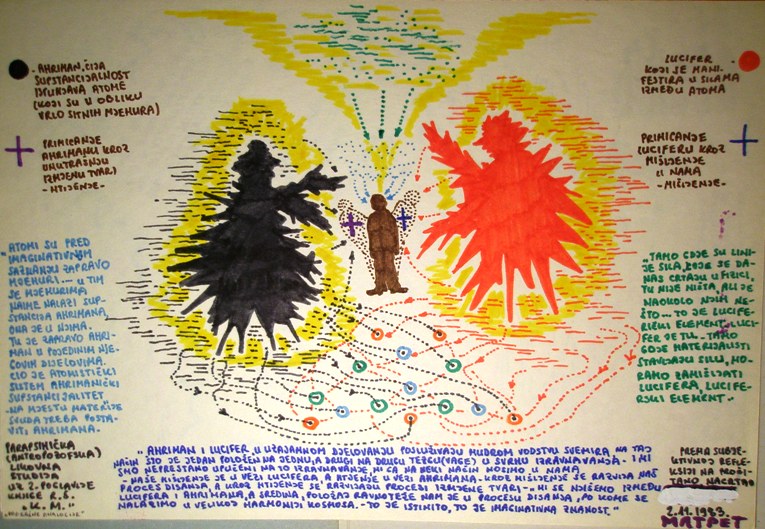 - AHRIMAN, ČIJA
SUPSTANCIJALNOST
ISPUNJAVA ATOME
(KOJI SU U OBLIKU
VRLO SITNIH MJEHURA)
PRIMICANJE
AHRIMANU KROZ
UNUTRAŠNJU
IZMJENU TVARI
- HTIJENJE -
"ATOMI SU PRED
IMAGINATIVNOM
SAZNANJU ZAPRAVO
MJEHURI.... U TIM
SE MJEHURIMA
NAIME NALAZI SUP-
STANCIJA AHRIMANA,
ONA JE U NJIMA.
TU JE ZAPRAVO AHRI-
MAN U POJEDINIM NJE-
GOVIM DIJELOVIMA.
CIO JE ATOMISTIČKI
SISTEM AHRIMANIČKI
SUPSTANCIJALITET
- NA MJESTU MATERIJE
SVUDA TREBA POSTA-
VITI AHRIMANA.
PARAPSIHIČKA
(ANTROPOZOFSKA)
LIKOVNA
STUDIJA
UZ 2. POGLAVLJE
KNJIGE R.S.
"K. M."
LUCIFER
KOJI SE MANI-
FESTIRA U SILAMA
IZMEĐU ATOMA
PRIMICANJE
LUCIFERU KROZ
MIŠLJENJE
U NAMA
- MIŠLJENJE -
"TAMO GDJE SU LINI-
JE SILA, KOJE SE DA-
NAS CRTAJU U FIZICI,
TU NIJE NIŠTA, ALI JE
NAOKOLO NJIH NE-
ŠTO... TO JE LUCIFE-
RIČKI ELEMENT. LUCI-
FER JE TU. - TAMO
GDJE MATERIJALISTI
STAVLJAJU SILU, MO-
RAMO ZAMIŠLJATI
LUCIFERA, LUCIFE-
RSKI ELEMENT -
"AHRIMAN I LUCIFER, U UZAJAMNOM DJELOVANJU POSLUŽIVAJU MUDROM VODSTVU SVEMIRA, NA TAJ
NAČIN ŠTO JE JEDAN POLOŽEN NA JEDNU, A DRUGI NA DRUGU TEZGU (VAGE) U SVRHU IZRAVNAVANJA - I MI
SMO NEPRESTANO UPUĆENI NA TO IZRAVNAVANJE, MI GA NA NEKI NAČIN NOSIMO U NAMA
- NAŠE MIŠLJENJE JE U VEZI LUCIFERA, A HTJENJE U VEZI AHRIMANA. KROZ MIŠLJENJE SE RAZVIJA NAŠ
PROCES DISANJA, A KROZ HTIJENJE SE RAZVIJAJU PROCESI IZMJENE TVARI -. MI SE NJIŠEMO IZMEĐU
LUCIFERA I AHRIMANA, A SREDINA, POLOŽAJ RAVNOTEŽE NAM JE U PROCESU DISANJA, PO KOME SE
NALAZIMO U VELIKOJ HARMONIJI KOSMOSA. - TO JE ISTINITO, TO JE IMAGINATIVNA ZNANOST."
PREMA SUBJE-
KTIVNOJ REFLE-
KSIJI NA PROČI-
TANO NACRTAO
2.11.1983.
MATPET